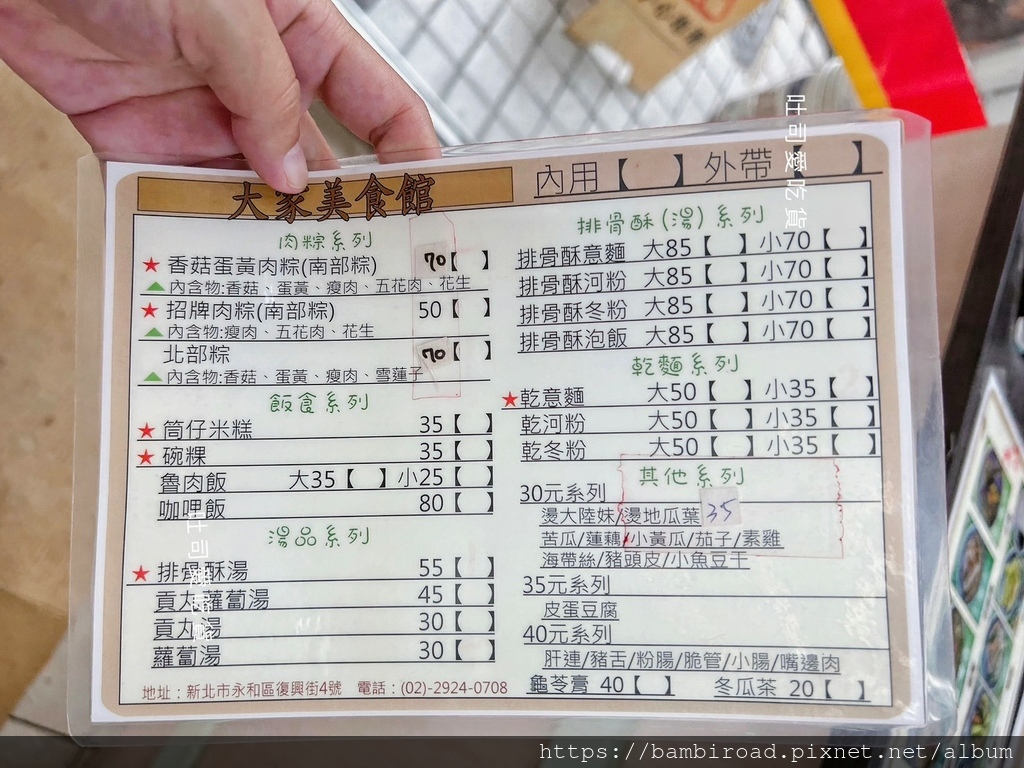 大家美食館
內用【 】 外帶【 】
肉粽系列
★ 香菇蛋黃肉粽(南部粽) 70【 】
▲ 內含物:香菇、蛋黃、瘦肉、五花肉、花生
★ 招牌肉粽(南部粽) 50【 】
▲ 內含物:瘦肉、五花肉、花生
北部粽 70【 】
▲ 內含物:香菇、蛋黃、瘦肉、雪蓮子
飯食系列
★ 筒仔米糕 35【 】
★ 碗粿 35【 】
魯肉飯 大35【 】小25【 】
咖哩飯 80【 】
湯品系列
★ 排骨酥湯 55【 】
貢丸蘿蔔湯 45【 】
貢丸湯 30【 】
蘿蔔湯 30【 】
地址：新北市永和區復興街4號 電話：(02)-2924-0708
排骨酥(湯)系列
排骨酥意麵 大85【 】小70【 】
排骨酥河粉 大85【 】小70【 】
排骨酥冬粉 大85【 】小70【 】
排骨酥泡飯 大85【 】小70【 】
乾麵系列
★乾意麵 大50【 】小35【 】
乾河粉 大50【 】小35【 】
乾冬粉 大50【 】小35【 】
其他系列
30元系列
燙大陸妹/燙地瓜葉 35
苦瓜/蓮藕/小黃瓜/茄子/素雞
海帶絲/豬頭皮/小魚豆干
35元系列
皮蛋豆腐
40元系列
肝連/豬舌/粉腸/脆管/小腸/嘴邊肉
龜苓膏 40【 】 冬瓜茶 20【 】
吐司愛吃貨
https://bambiroad.pixnet.net/album